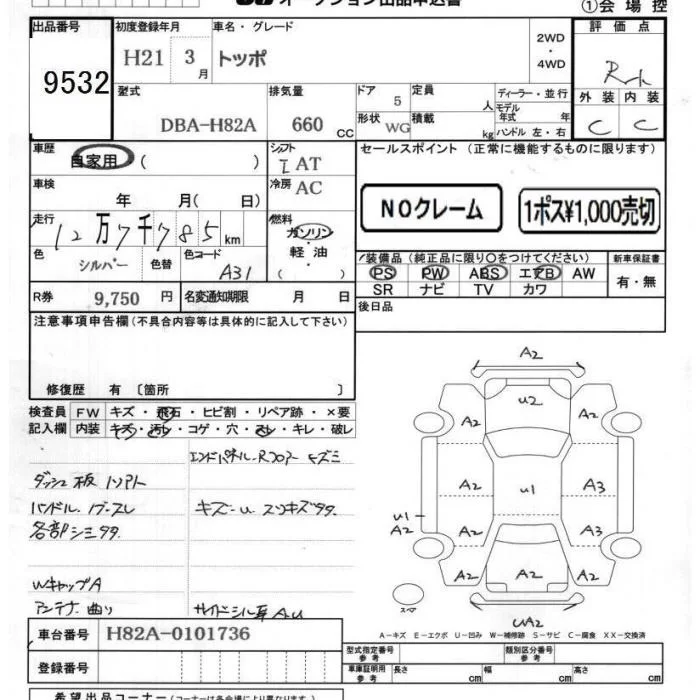 オークション出品申込書
①会場控
出品番号
9532
初度登録年月
H21 3月
車名・グレード
トッポ
2WD
・
4WD
評価点
外装 内装
C C
型式
DBA-H82A
排気量
660 CC
ドア
5
定員
人
形状
WG
積載
kg
ディーラー・並行
モデル年式 年
ハンドル 左・右
車歴
自家用 ( )
シフト
I AT
車検
年 月( 日)
冷房
AC
走行
12万7千785km
燃料
ガソリン・
軽油・
( )
色
シルバー
色替
色コード
A31
R券 9,750円
名変通知期限 月 日
セールスポイント(正常に機能するものに限ります)
NOクレーム
1ポス¥1,000売切
装備品(純正品に限り○をつけてください)
PS PW ABS エアB AW
SR ナビ TV カワ
新車保証書
有・無
後日品
注意事項申告欄(不具合内容等は具体的に記入して下さい)
修復歴 有〔箇所 〕
検査員記入欄
FW キズ・飛石・ヒビ割・リペア跡・×要
内装 キズ・汚レ・コゲ・穴・スレ・キレ・破レ
エンドパネル・Rフロアーキズミ
ダッシュ板
ハンドル
キズ・U スリキズタタ
各部シミタタ
WキャップA
アンテナ曲り
サイドシル耳A.U
A2
A2 U2 A2
A2 U1 A3
U1
A2 A2 A3
A2 A2 A2
UA2
スペア
A－キズ E－エクボ U－凹み W－補修跡 S－サビ C－腐食 XX－交換済
車台番号 H82A-0101736
登録番号
型式指定番号参考
類別区分番号参考
車庫証明用参考
長さ cm 幅 cm 高さ cm
希望出品コーナー(コーナーは各会場によって異なります)